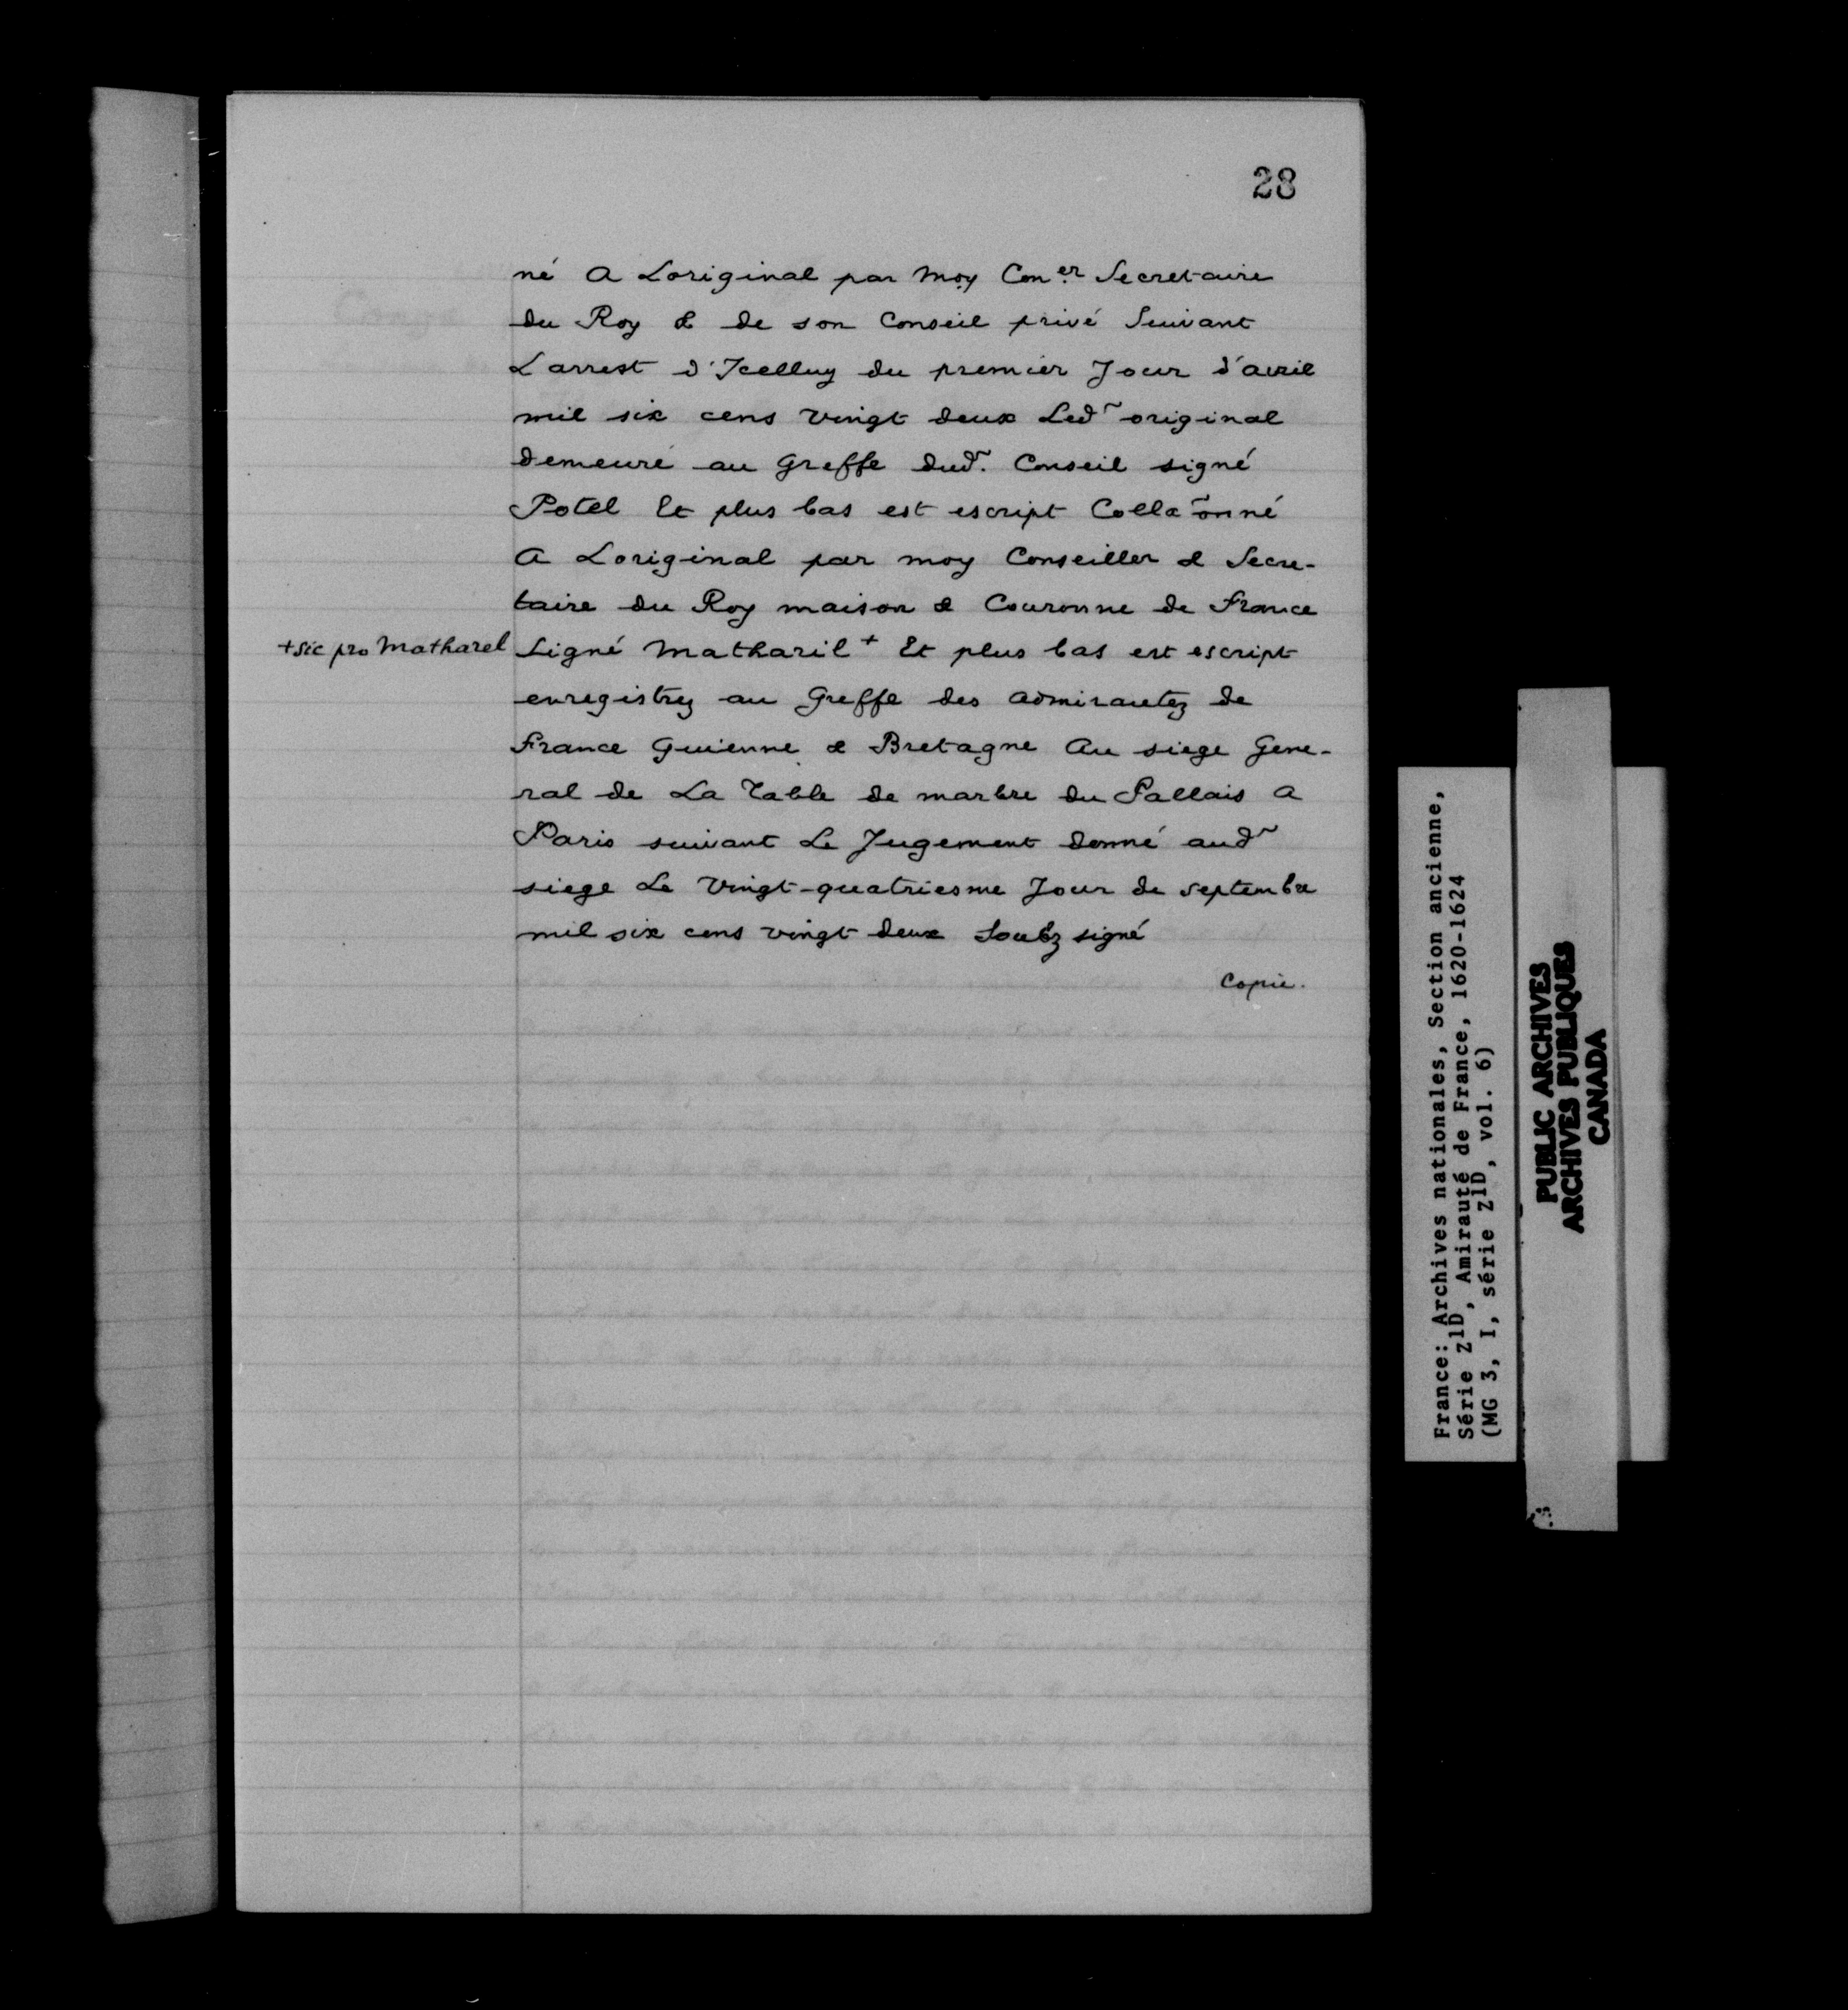 28
né A Loriginal par Moy Con.er Secretaire
du Roy & de son Conseil privé Suivant
Larrest d'Icelluy du premier Jour d'avril
mil six cens vingt deux Led~ original
demeuré au Greffe dud~. Conseil signé
Potel Et plus bas est escript Colla~onné
A Loriginal par moy Conseiller & Secre-
taire du Roy maison & Couronne de France
+sic pro Matharel Signé Matharil+ Et plus bas est escript
enregistrez au Greffe des admirautez de
France Guienne & Bretagne Au siege Gene-
ral de La Table de marbre du Pallais A
Paris suivant Le Jugement donné aud~
siege Le vingt-quatriesme Jour de septembre
mil six cens vingt deux Soubz signé
Copie.
France: Archives nationales, Section ancienne,
Série Z1D, Amirauté de France, 1620-1624
(MG 3, I, série Z1D, vol. 6)
PUBLIC ARCHIVES
ARCHIVES PUBLIQUES
CANADA